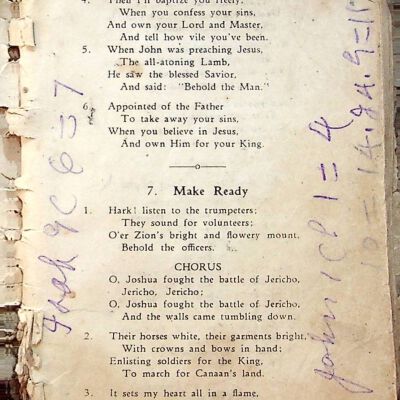 4. Then I'll baptize you freely,
When you confess your sins,
And own your Lord and Master,
And tell how vile you've been.
5. When John was preaching Jesus,
The all-atoning Lamb,
He saw the blessed Savior,
And said: "Behold the Man."
6. Appointed of the Father
To take away your sins,
When you believe in Jesus,
And own Him for your King.
7. Make Ready
1. Hark! listen to the trumpeters;
They sound for volunteers;
O'er Zion's bright and flowery mount,
Behold the officers.
CHORUS
O, Joshua fought the battle of Jericho,
Jericho, Jericho;
O, Joshua fought the battle of Jericho,
And the walls came tumbling down.
2. Their horses white, their garments bright,
With crowns and bows in hand;
Enlisting soldiers for the King,
To march for Canaan's land.
3. It sets my heart all in a flame,
9 C 6 = 7
John 1 Ch 1 = 4